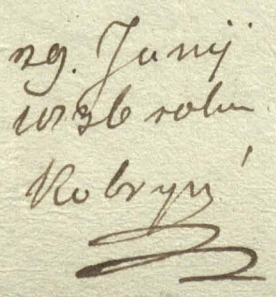 29. Junij
1836 roku
Kobryń